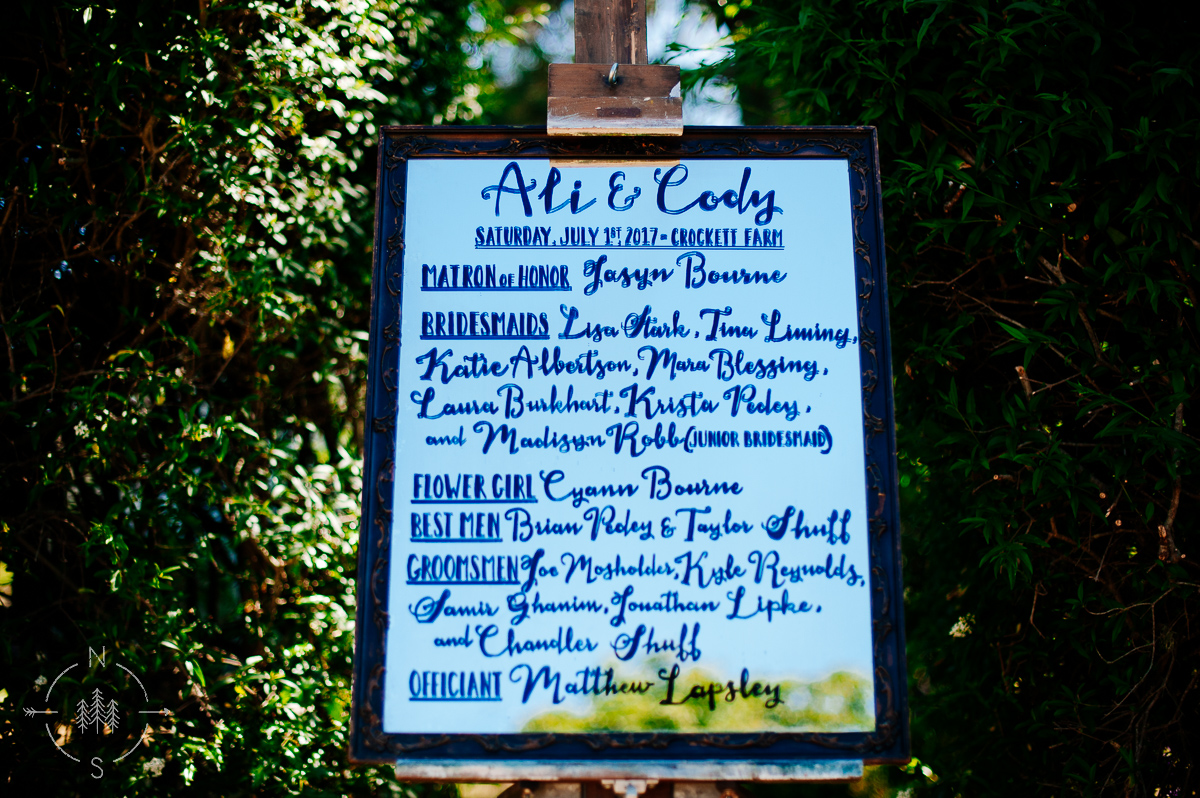 Ali & Cody
SATURDAY, JULY 1ST, 2017 - CROCKETT FARM
MATRON OF HONOR Jasyn Bourne
BRIDESMAIDS Lisa Stark, Tina Liming,
Katie Albertson, Mara Blessing,
Laura Burkhart, Krista Pedey,
and Madisyn Robb (JUNIOR BRIDESMAID)
FLOWER GIRL Cyann Bourne
BEST MEN Brian Pedey & Taylor Shuff
GROOMSMEN Joe Mosholder, Kyle Reynolds,
Samir Ghanim, Jonathan Lipke,
and Chandler Shuff
OFFICIANT Matthew Lapsley
N
S